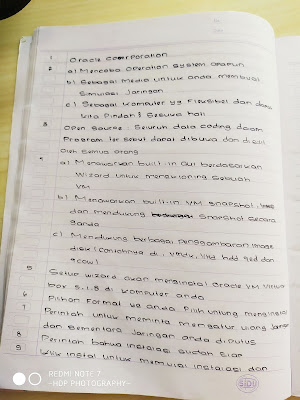 1 Oracle coorporation
2 a) Mencoba operation system apapun
b) Sebagai Media untuk anda membuat
Simulasi Jaringan
c) Sebagai komputer yg Fleksibel dan dapat
kita Pindah² Sesuka hati
3 Open Source : Seluruh data coding dalam
Program ter sebut dapat dibuka dan diedit
oleh semua orang
4 a) Menawarkan built-in GUI berdasarkan
Wizard untuk mengkloning sebuah
VM
b) Menawarkan built-in VM snapshot,
dan mendukung snapshot secara
ganda
c) Mendukung berbagai penggambaran image
disk (contohnya di, vmdk, vhd hdd qed dan
qcow)
5 Setup wizard akan menginstal Oracle VM Virtual
box 5.1.8 di komputer anda
6 Pilihan Format yg anda Pilih untuk menginstal
7 Perintah untuk meminta mengatur ulang jaringan
dan sementara jaringan anda diputus
8 Perintah bahwa instalasi sudah siap
9 klik instal untuk memulai instalasi dan
SIDU
REDMI NOTE 7
-HDP PHOTOGRAPHY-